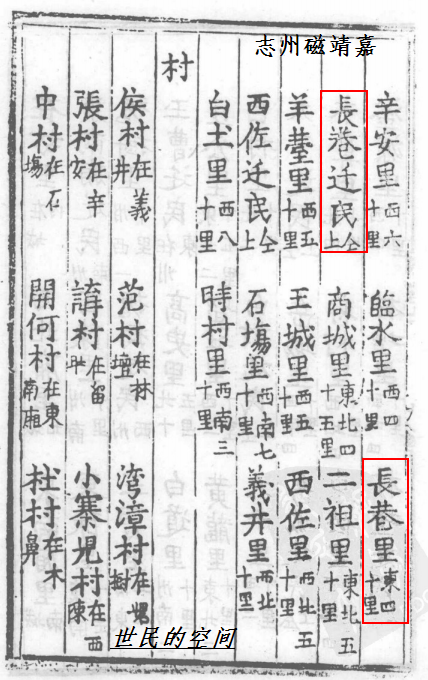 嘉靖磁州志
辛安里西六十里 臨水里西四十里 長巷里東四十里
長巷迁民仝上 商城里東北四十五里 二祖里東北五十里
羊臺里西五十里 王城里西五十里 西佐里西北五十里
西佐迁民仝上 石塲里西南七十里 義井里西北十里
白土里西八十里 時村里西南三十里
村
侯村在義井 范村在林壇 湾漳村在樹
張村在辛安 村在留 小寨児村在西陳
中村在石塲 開何村在東南廂 杜村在木鼻
世民的空间